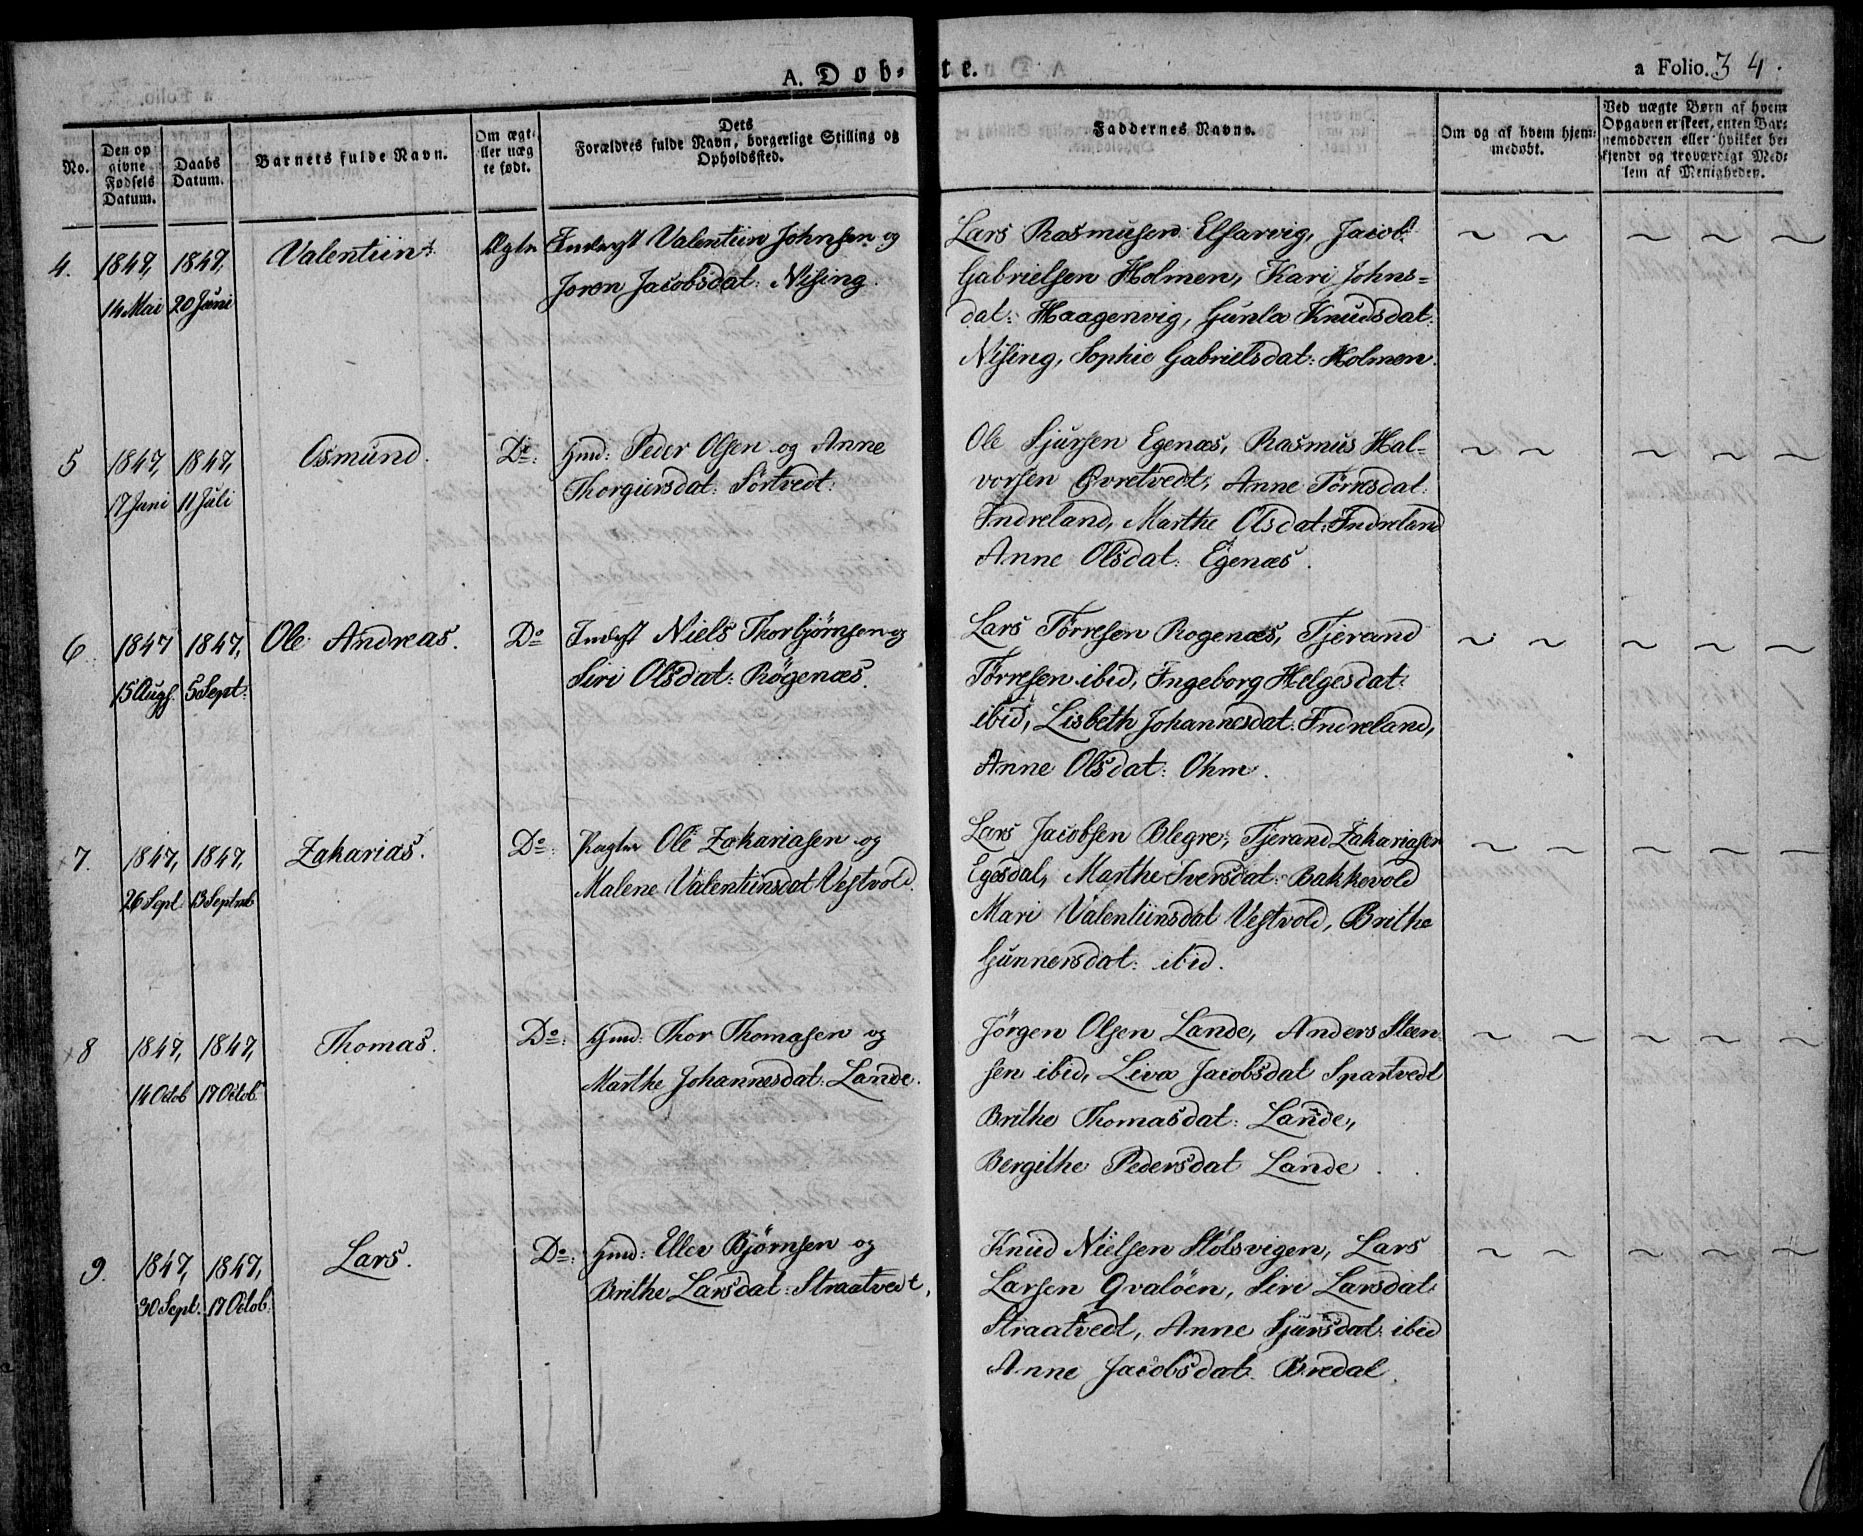 A. Døb-te.
a Folio. 34.
No.
Den op
givne
Fødsels
Datum.
Daabs
Datum.
Barnets fulde Navn.
Om ægt-
eller uæg
te født.
Dets
Forældres fulde Navn, borgerlige Stilling og
Opholdssted.
Faddernes Navne.
Om og af hvem hjem-
medøbt.
Ved uægte Børn af hvem
Opgaven er skeet, enten Bar-
nemoderen eller hvilket be-
kjendt og troværdigt Med-
lem af Menigheden.
4. 1847, 14 Mai
1847, 20 Juni
Valentiin
Ægte
Inderst Valentiin Johnsen og
Joren Jacobsdat: Nising.
Lars Rasmusen Elfarvig, Jacob
Gabrielsen Holmen, Kari Johns=
dat: Haagenvig, Gunla Knudsdat:
Nising, Sophie Gabrielsdat: Holmen.
5 1847, 17 Juni
1847, 11 Juli
Osmund.
Do:
Gmd: Peder Olsen og Anne
Thorgiersdat: Sørtvedt.
Ole Sjursen Egenæs, Rasmus Hal-
vorsen Øvretvedt, Anne Tørresdat:
Indreland, Marthe Olsdat: Indreland
Anne Olsdat: Egenæs.
6. 1847 15 Augs.
1847, 5 Sept:
Ole Andreas.
Do
Inderst Niels Thorbjørnsen og
Siri Olsdat: Røgenæs.
Lars Tørresen Rogenæs, Tjerand
Tørresen ibid, Ingeborg Helgesdat:
ibid, Lisbeth Johannesdat: Indreland,
Anne Olsdat: Ohm.
7. 1847, 26 Sept.
1847, 13 Septmb
Zakarias.
Do:
Ole Zakariasen og
Malene Valentiinsdat Vestvold.
Lars Jacobsen Blegre, Tjerand Zakariasen
Egesdal, Marthe Iversdat: Bakkevold
Mari Valentiinsdat Vestvold, Brithe
Gunnersdat: ibid.
8 1847, 14 Octob
1847, 17 Octob.
Thomas.
Do:
Gmd: Thor Thomasen og
Marthe Johannesdat: Lande.
Jørgen Olsen Lande, Anders Steen
sen ibid, Liva Jacobsdat Spartvedt
Brithe Thomasdat: Lande,
Bergithe Pedersdat Lande.
9. 1847, 30 Sept.
1847, 17 Octob.
Lars.
Do:
Gmd: Ellev Bjørnsen og
Brithe Larsdat: Straatvedt,
Knud Nielsen Stølsvigen, Lars
Larsen Qvaløen, Siri Larsdat:
Straatvedt, Anne Sjursdat: ibid
Anne Jacobsdat: Bredal.